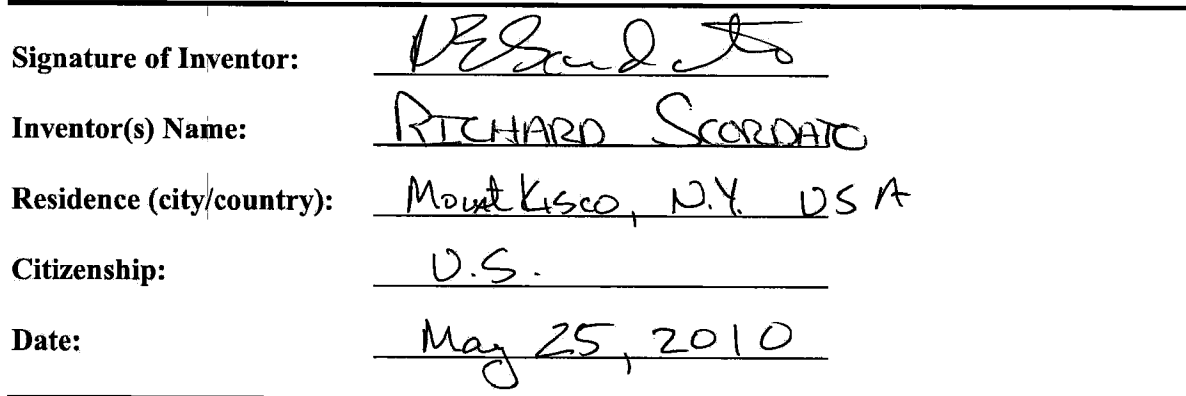 Signature of Inventor:
Inventor(s) Name: RICHARD SCORDATO
Residence (city/country): Mount Kisco, N.Y. USA
Citizenship: U.S.
Date: May 25, 2010